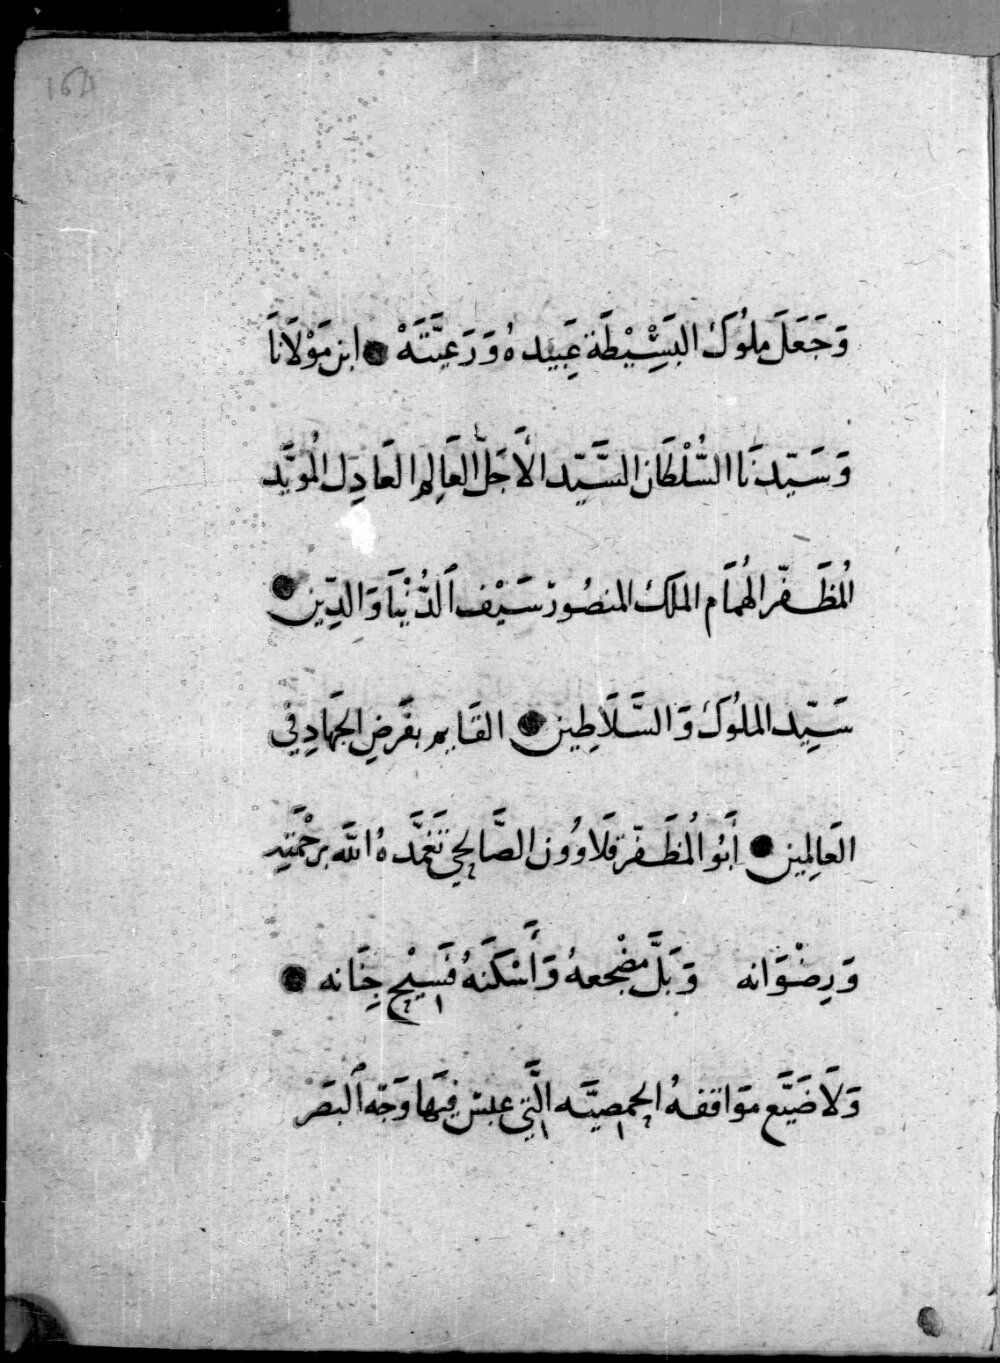 164
وَجَعَلَ ملُوكَ البَسِيْطَة عَبِيدهُ وَرَعِيَّتَهْ ● ابن مَوْلَانَا
وَسَيّدنَا السُّلْطَان السَّيّد الأَجَلّ العَالِم العَادِل المُويَّد
المُظَفّر الهُمَام الملك المنصُور سَيْف الدُّنْيَا وَالدِّين ●
سَيِّد الملُوك وَالسَّلَاطِين ● القَايم بفَرضِ الجهَادِ في
العَالِمين ● أَبُو المُظَفّر قَلَاوُون الصَّالحي تَغَمَّدهُ اللَّه برحْمَتِه
وَرِضْوَانه وَبَلَّ مضْجعهُ وَأَسْكَنَهُ فَسِيْح جِنَانه ●
وَلَا ضَيَّع مَوَاقفهُ الحمصيَّه الَّتي عبس فِيهَا وَجْه البصَر